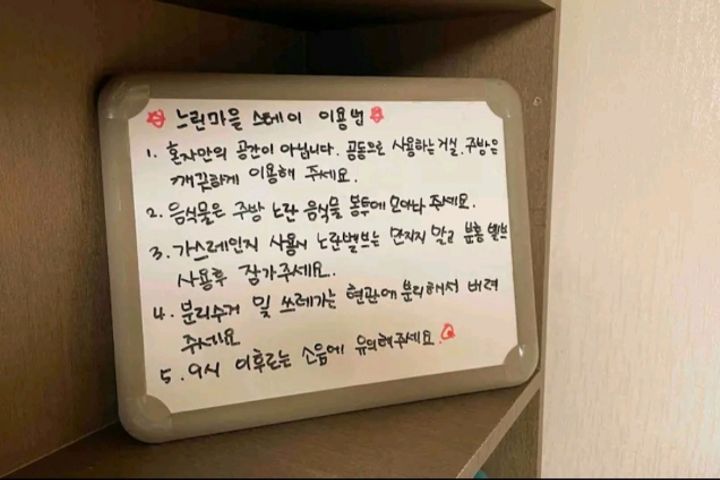 느린마을 스테이 이용법
1. 혼자만의 공간이 아닙니다. 공동으로 사용하는 거실, 주방은
깨끗하게 이용해 주세요.
2. 음식물은 주방 노란 음식물 봉투에 모아나 주세요.
3. 가스레인지 사용시 노란밸브는 만지지 말고 분홍 밸브
사용후 잠가주세요.
4. 분리수거 및 쓰레기는 현관에 분리해서 버려
주세요
5. 9시 이후로는 소음에 유의해주세요.